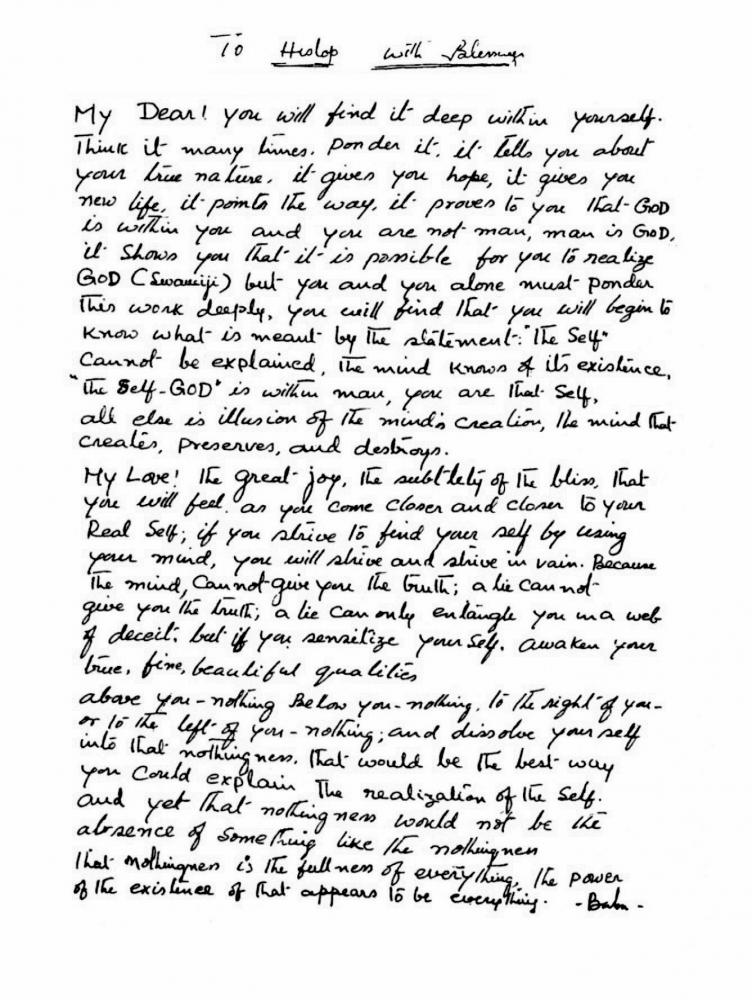 To Hislop with Blessings
My Dear! you will find it deep within yourself.
Think it many times. Ponder it, it tells you about
your true nature, it gives you hope, it gives you
new life, it points the way, it proves to you that GOD
is within you and you are not man, man is GOD,
it shows you that it is possible for you to realize
GOD (Swamiji) but you and you alone must ponder
this work deeply, you will find that you will begin to
know what is meant by the statement: "The Self"
Cannot be explained, the mind knows of its existence,
"the Self-GOD" is within man, you are that Self,
all else is illusion of the mind's creation, the mind that
creates, preserves, and destroys.
My Love! the great joy, the subtlety of the bliss, that
you will feel as you come closer and closer to your
Real Self; if you strive to find your self by using
your mind, you will strive and strive in vain. Because
the mind, Cannot give you the truth; a lie cannot
give you the truth; a lie can only entangle you in a web
of deceit. but if you sensitize your Self. awaken your
true, fine, beautiful qualities
above you-nothing Below you-nothing, to the right of you-
or to the left of you-nothing; and dissolve your self
into that nothingness, that would be the best way
you could explain the realization of the Self.
and yet that nothingness would not be the
absence of something like the nothingness
that nothingness is the fullness of everything, the power
of the existence of that appears to be everything. -Baba-